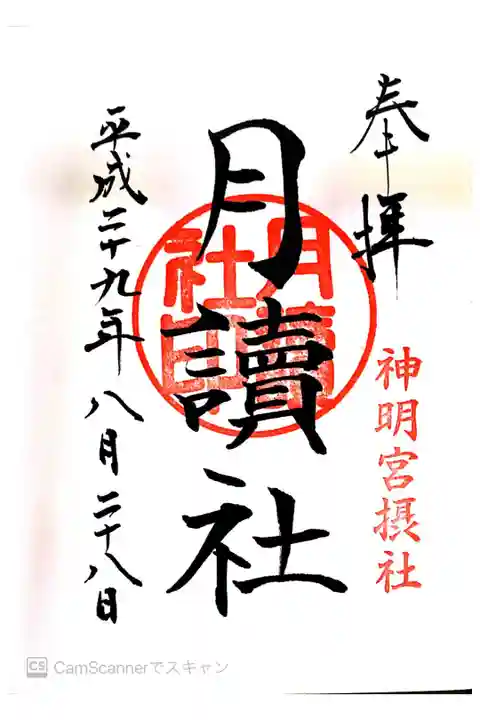 奉拝
神明宮摂社
月讀社
月讀社印
平成二十九年八月二十八日
CS CamScannerでスキャン